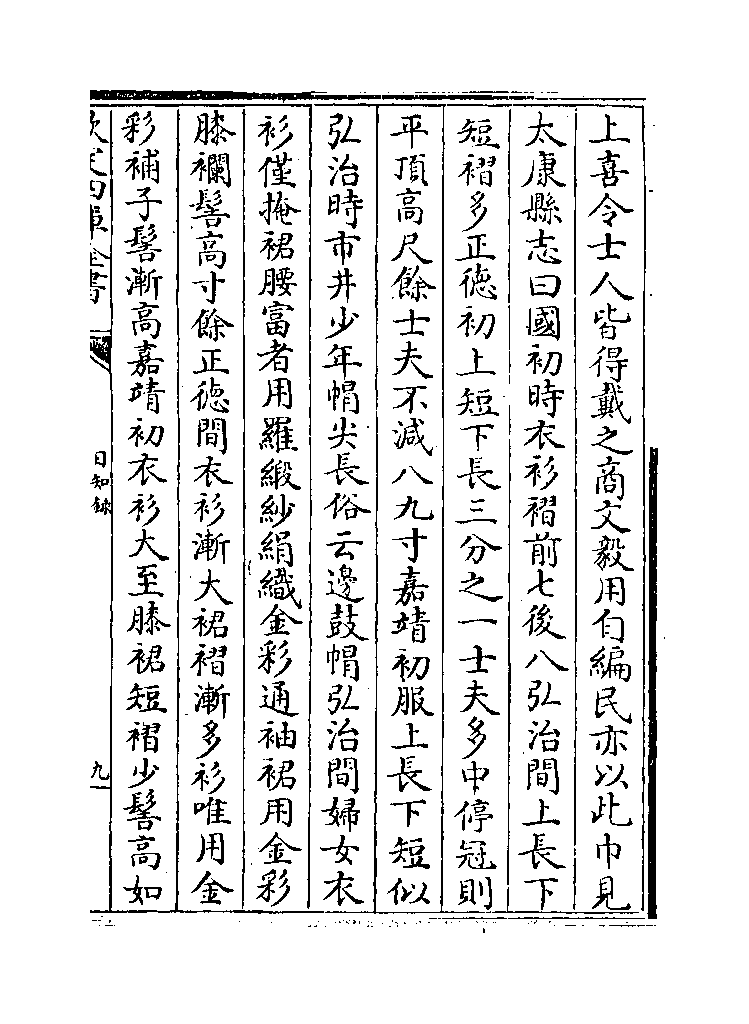 上喜令士人皆得戴之商文毅用自編民亦以此巾見
太康縣志曰國初時衣衫褶前七後八弘治間上長下
短褶多正徳初上短下長三分之一士夫多中停冠則
平頂高尺餘士夫不減八九寸嘉靖初服上長下短似
弘治時市井少年帽尖長俗云邊鼓帽弘治間婦女衣
衫僅掩裙腰富者用羅緞紗絹織金彩通袖裙用金彩
膝襴髻高寸餘正徳間衣衫漸大裙褶漸多衫唯用金
彩補子髻漸高嘉靖初衣衫大至膝裙短褶少髻高如
欽定四庫全書
日知録
九